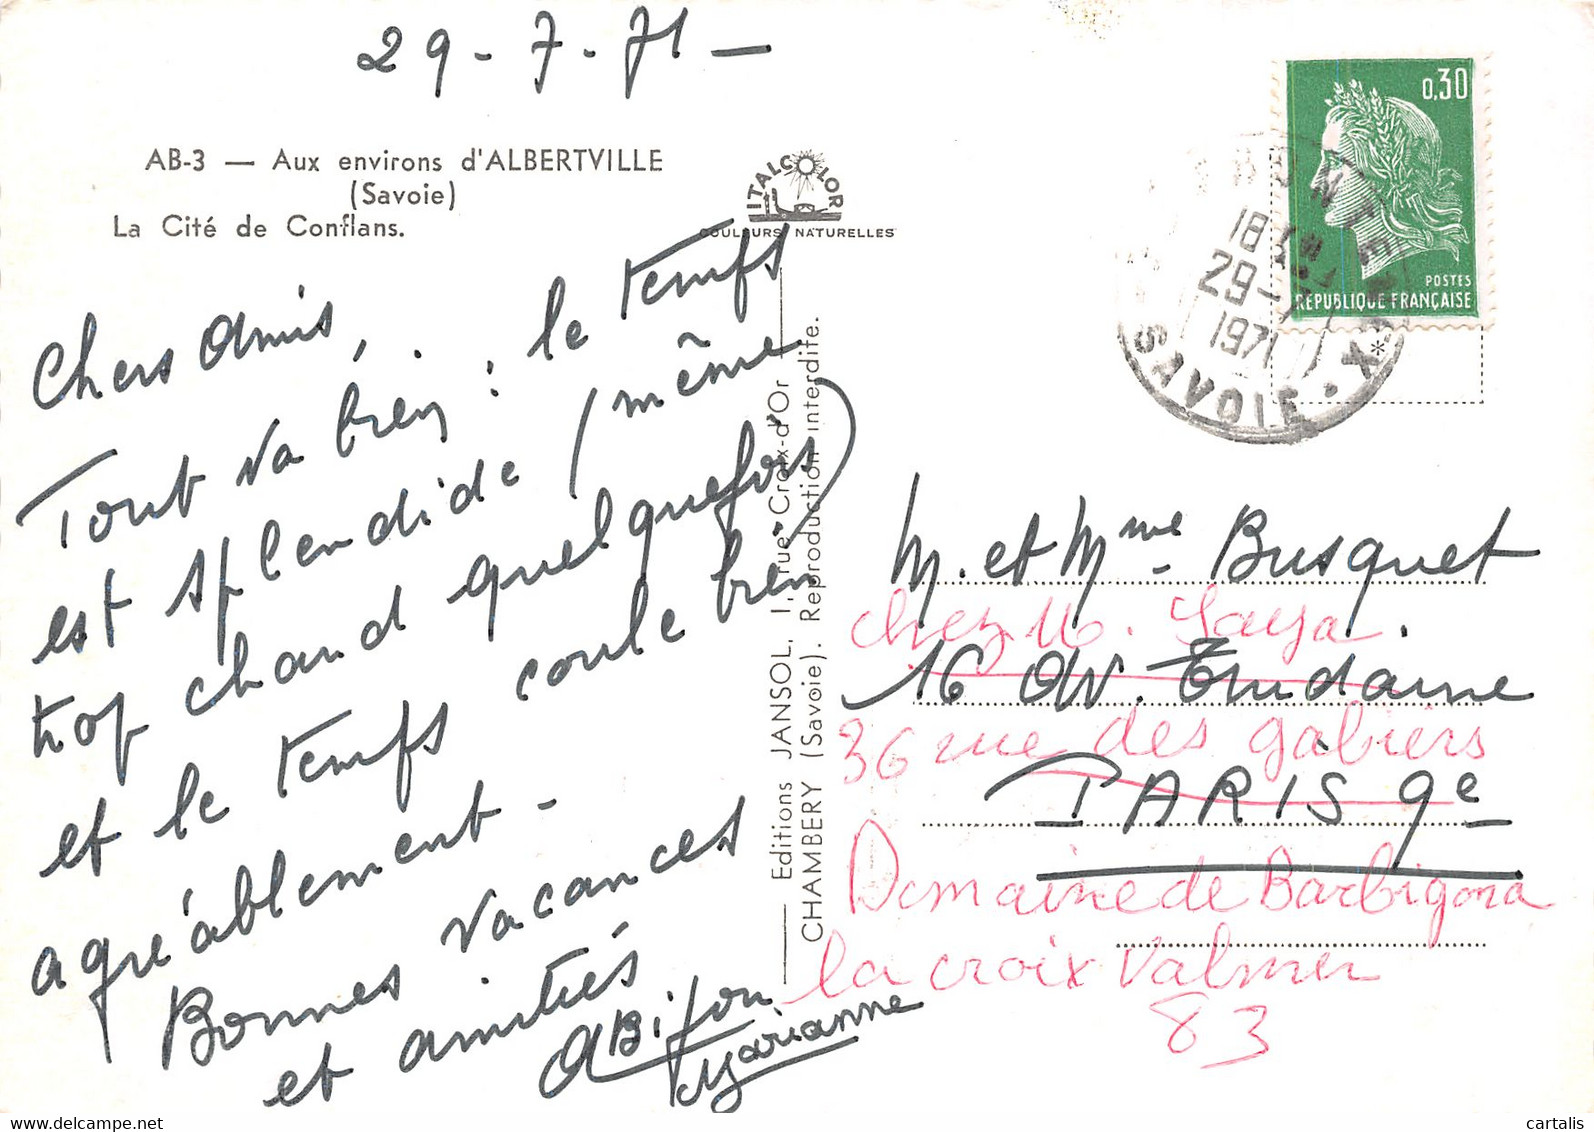 29-7-71 —
AB-3 — Aux environs d'ALBERTVILLE
(Savoie)
La Cité de Conflans.
ITALCOLOR
COULEURS NATURELLES
0,30
POSTES
REPUBLIQUE FRANÇAISE
18
29-7
1971
SAVOIE
Chers Amis,
Tout va bien : le temps
est splendide (même
trop chaud quelquefois)
et le temps coule bien
agréablement -
Bonnes vacances
et amitiés
Marianne
Editions JANSOL, 1, rue Croix-d'Or
CHAMBERY (Savoie). Reproduction interdite.
M. et Mme Busquet
chez M.
16 Av. Trudaine
36 rue des gabiers
PARIS 9e
Domaine de Barbigoua
la croix Valmer
83
cartalis